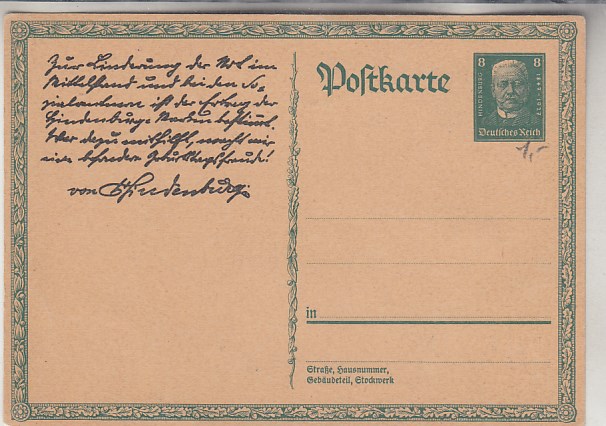 Zur Linderung der Not im
Mittelstand und bei den So-
zialrentnern ist der Ertrag der
Hindenburg-Marken bestimmt.
Wer dazu mithilft, macht mir
eine besondere Geburtstagsfreude!
von Hindenburg.
Postkarte
8 8
HINDENBURG
1847-1927
Deutsches Reich
1,-
in
Straße, Hausnummer,
Gebäudeteil, Stockwerk